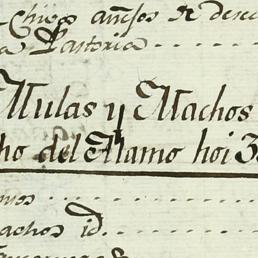 Chicos añejos de
a Pastoria
Mulas y Machos
ho del Alamo hoi 3
achos id.